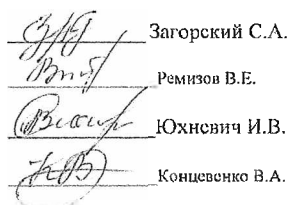 Загорский С.А.
Ремизов В.Е.
Юхневич И.В.
Концевенко В.А.